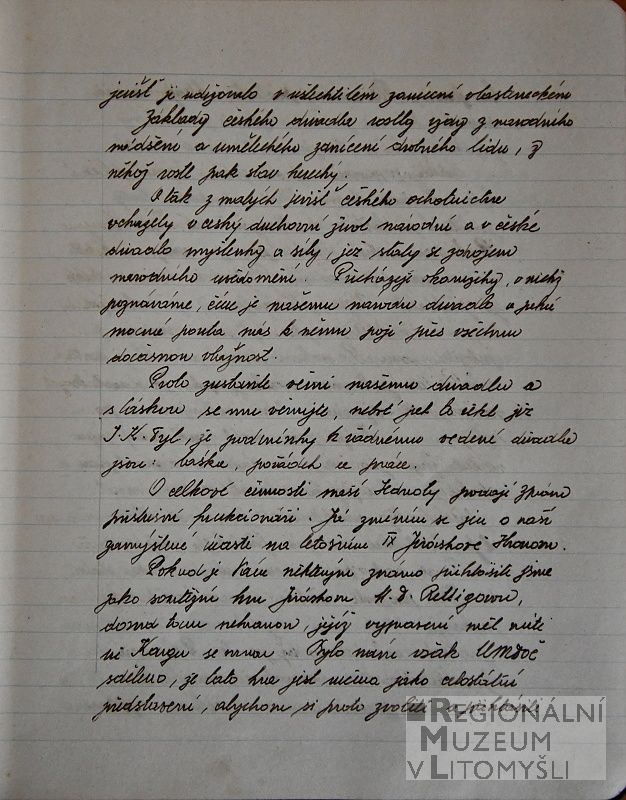 jevišť je udržovalo v ušlechtilém zanícení vlasteneckém
Základy českého divadla rostly vždy z národního
nadšení a uměleckého zanícení drobného lidu, z
něhož rostl pak stav herecký.
A tak z malých jevišť českého ochotnictva
vcházely v český duchovní život národní a v české
divadlo myšlenky a síly, jež staly se zdrojem
národního uvědomění. Přicházejí okamžiky, v nichž
poznáváme, čím je našemu národu divadlo a jaká
mocná pouta nás k němu pojí přes všechnu
dočasnou vlažnost.
Proto zůstaňte věrni našemu divadlu a
s láskou se mu věnujte, neboť jak to řekl již
J. K. Tyl, je podmínky k řádnému vedení divadla
jsou: láska, pořádek a práce.
O celkové činnosti naší Jednoty podají zprávu
příslušní funkcionáři. Já zmíním se jen o naší
zamýšlené účasti na letošním IX Jiráskově Hronov.
Pokud je Vám některým známo přihlásili jsme
jako soutěžní hru Jiráskovu M. D. Rettigovou,
doma tom nehranou, jejíž vypravení měl míti
ní Kargr se mnou Bylo nám však ÚMDOČ
sděleno, že tato hra jest určena jako celostátní
představení, abychom si proto zvolili a přihlásili
REGIONÁLNÍ
MUZEUM
V LITOMYŠLI